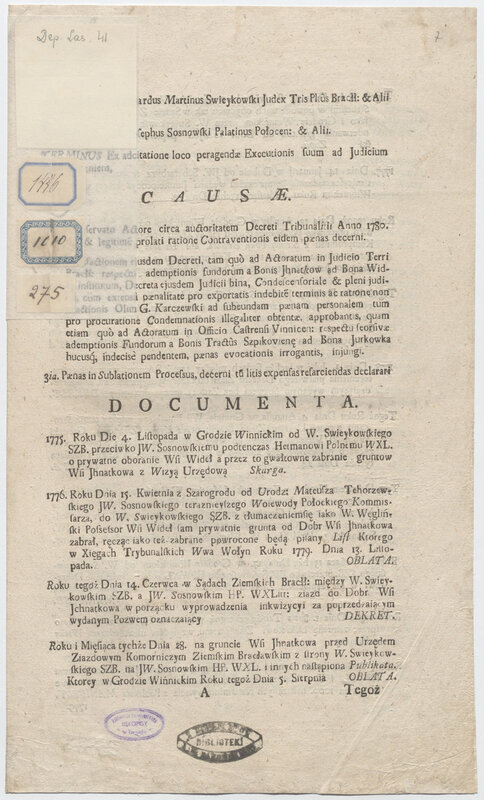 Dep. Sas. 41
7
ardus Martinus Swieykowski Judex Tris Pltus Bracł: & Alii
sephus Sosnowski Palatinus Połocen: & Alii.
TERMINUS Ex adcitatione loco peragendæ Executionis suum ad Judicium
CAUSÆ.
1486
1010
275
servato Actore circa auctoritatem Decreti Tribunalitii Anno 1780.
& legitime prolati ratione Contraventionis eidem pænas decerni.
ejusdem Decreti, tam quò ad Actoratum in Judicio Terri
ademptionis fundorum a Bonis Jhnatkow ad Bona Wid-
Decreta ejusdem Judicii bina, Condescensoriale & pleni judi-
pænalitate pro exportatis indebitè terminis ac ratione non
Olim G. Karczewski ad subeundam pænam personalem tum
pro procuratione Condemnationis illegaliter obtentæ, approbantis, quam
etiam quo ad Actoratum in Officio Castrensi Vinnicen: respectu seorsivæ
ademptionis Fundorum a Bonis Tractûs Szpikovienẽ ad Bona Jurkowka
hucusq́, indecisè pendentem, pænas evocationis irrogantis, injungi.
3tia. Pænas in Sublationem Processus, decerni tũ litis expensas resarciendas declarari
DOCUMENTA.
1775. Roku Die 4. Listopada w Grodzie Winnickim od W. Swieykowskiego
SZB. przeciwko JW. Sosnowskiemu podtenczas Hetmanowi Polnemu WXL.
o prywatne oboranie Wsi Wideł a przez to gwałtowne zabranie gruntow
Wsi Jhnatkowa z Wizyą Urzędową Skarga.
1776. Roku Dnia 15. Kwietnia z Szarogrodu od Urodzi Mateusza Tehorzew-
skiego JW. Sosnowskiego teraznieyszego Woiewody Połockiego Kommis-
sarza, do W. Swieykowskiego SZB. z tłumaczeniemsię iako W. Węgliń-
ski Possessor Wsi Wideł sam prywatnie grunta od Dobr Wsi Jhnatkowa
zabrał, ręcząc iako też zabrane powrocone będą pisany List Ktorego
w Xięgach Trybunalskich Wwa Wołyn Roku 1779. Dnia 13. Listo-
pada. OBLATA.
Roku tegoż Dnia 14. Czerwca w Sądach Ziemskich Bracł: między W. Swiey-
kowskim SZB. a JW. Sosnowskim HP. WXLitt: ziazd do Dobr Wsi
Jchnatkowa w porządku wyprowadzenia inkwizycyi za poprzedzaiącym
wydanym Pozwem oznaczaiący DEKRET.
Roku i Miesiąca tychże Dnia 28. na gruncie Wsi Jhnatkowa przed Urzędem
Ziazdowym Komorniczym Ziemskim Bracławskim z strony W. Swieykow-
skiego SZB. na JW. Sosnowskim HP. WXL. i innych nastąpiona Publikata.
Ktorey w Grodzie Wińnickim Roku tegoż Dnia 5. Sierpnia OBLATA.
A Tegoż
BIBLIOTEKI